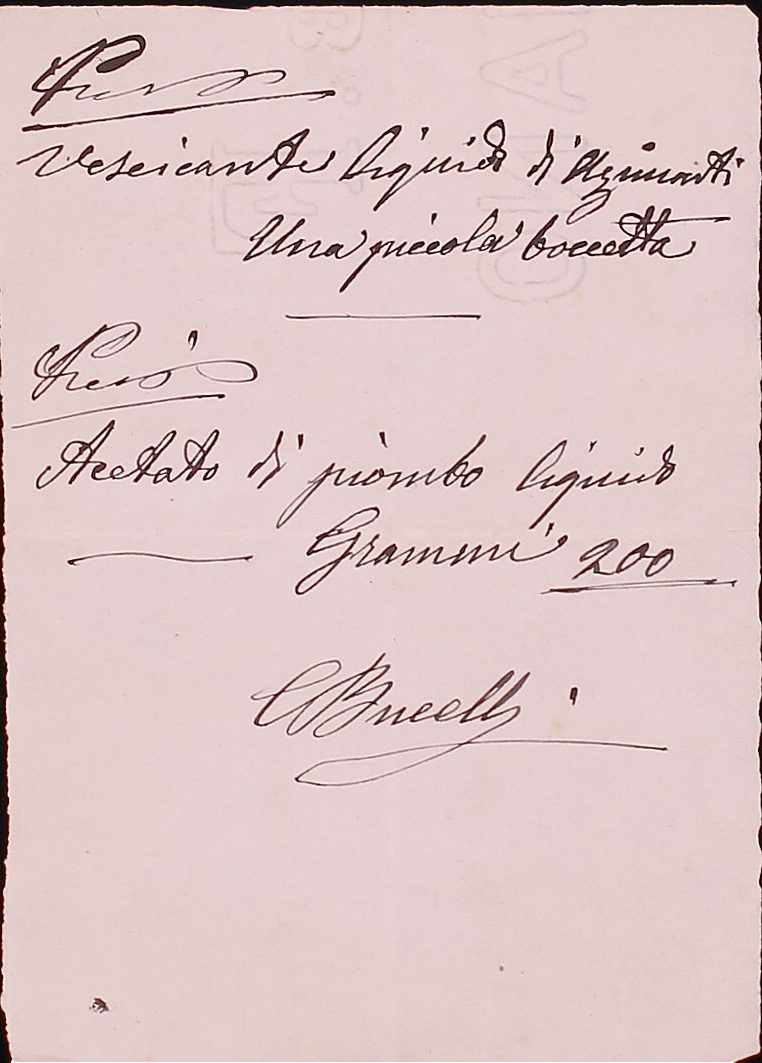 Vescicante liquido di Azimonti
Una piccola boccetta
Acetato di piombo liquido
Grammi 200